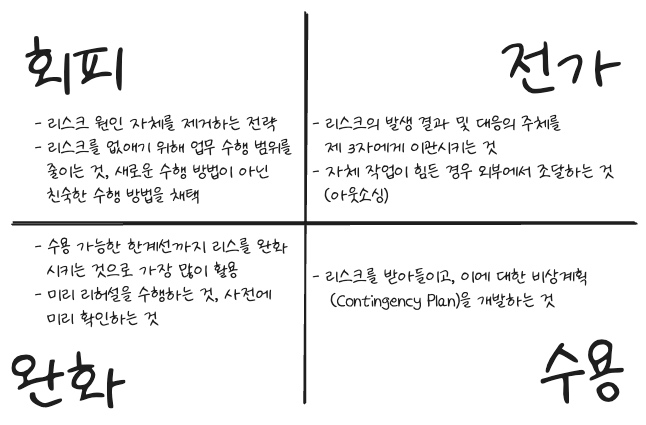 회피
- 리스크 원인 자체를 제거하는 전략
- 리스크를 없애기 위해 업무 수행 범위를
줄이는 것, 새로운 수행 방법이 아닌
친숙한 수행 방법을 채택
전가
- 리스크의 발생 결과 및 대응의 주체를
제 3자에게 이관시키는 것
- 자체 작업이 힘든 경우 외부에서 조달하는 것
(아웃소싱)
- 수용 가능한 한계선까지 리스를 완화
시키는 것으로 가장 많이 활용
- 미리 리허설을 수행하는 것, 사전에
미리 확인하는 것
완화
- 리스크를 받아들이고, 이에 대한 비상계획
(Contingency Plan)을 개발하는 것
수용